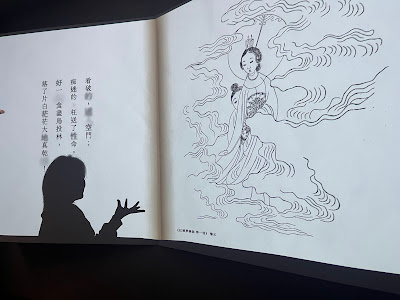 看破，空門；
痴迷的 枉送了性命。
好一 食盡鳥投林，
落了片白茫茫大地真乾